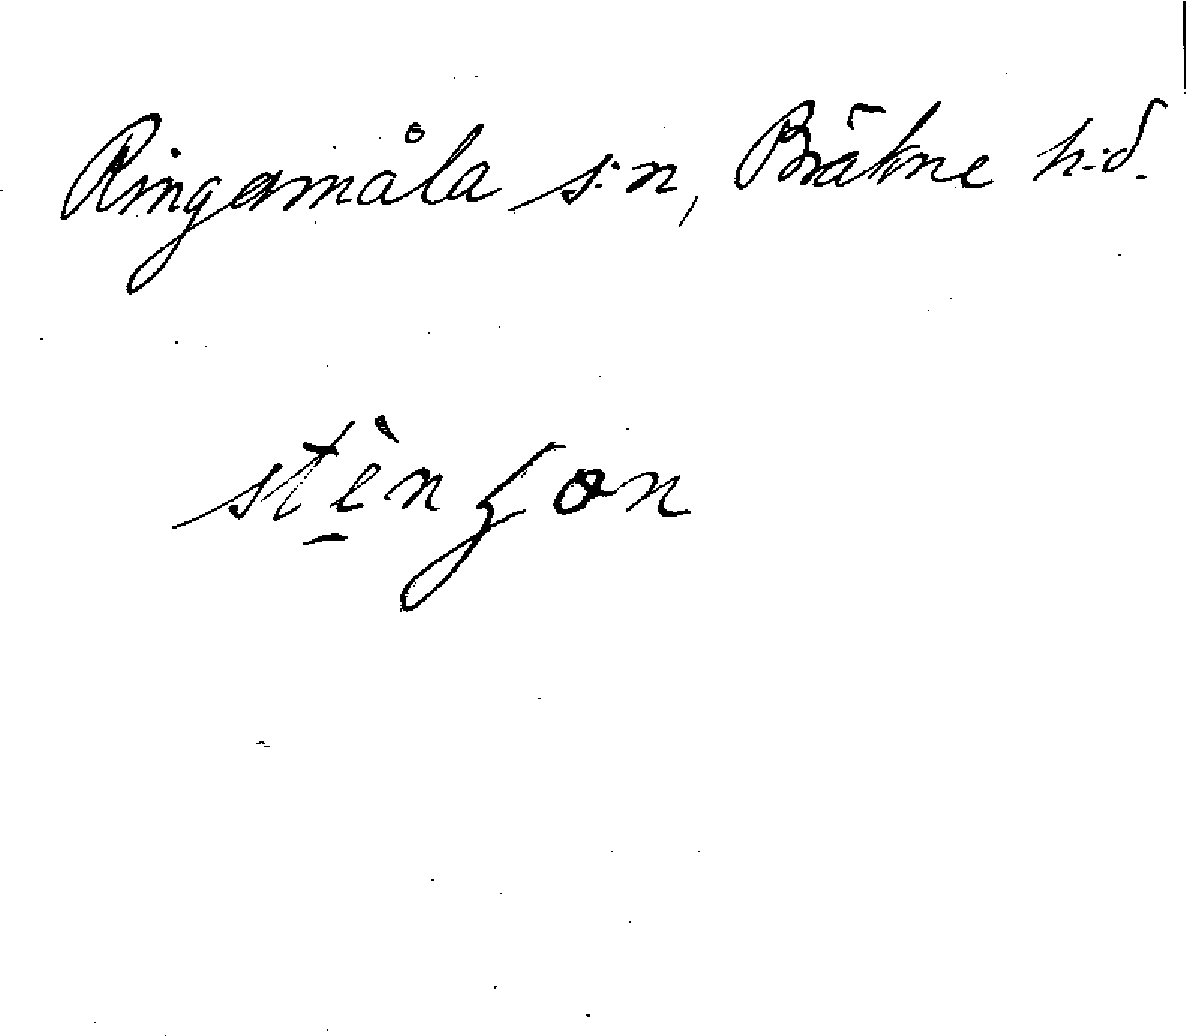 Ringamåla s:n, Bräkne h:d.
stènʒon